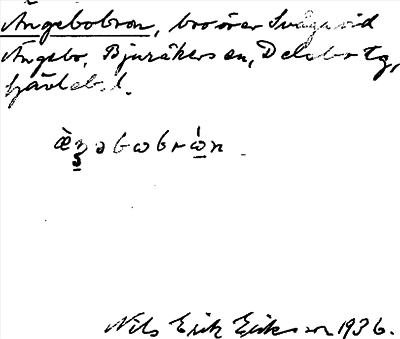 Ängebobron, bro över Svågan vid
Ängebo, Bjuråkers sn, Delsbo tg,
Gävlebs l.
Nils Erik Eriksson 1936.